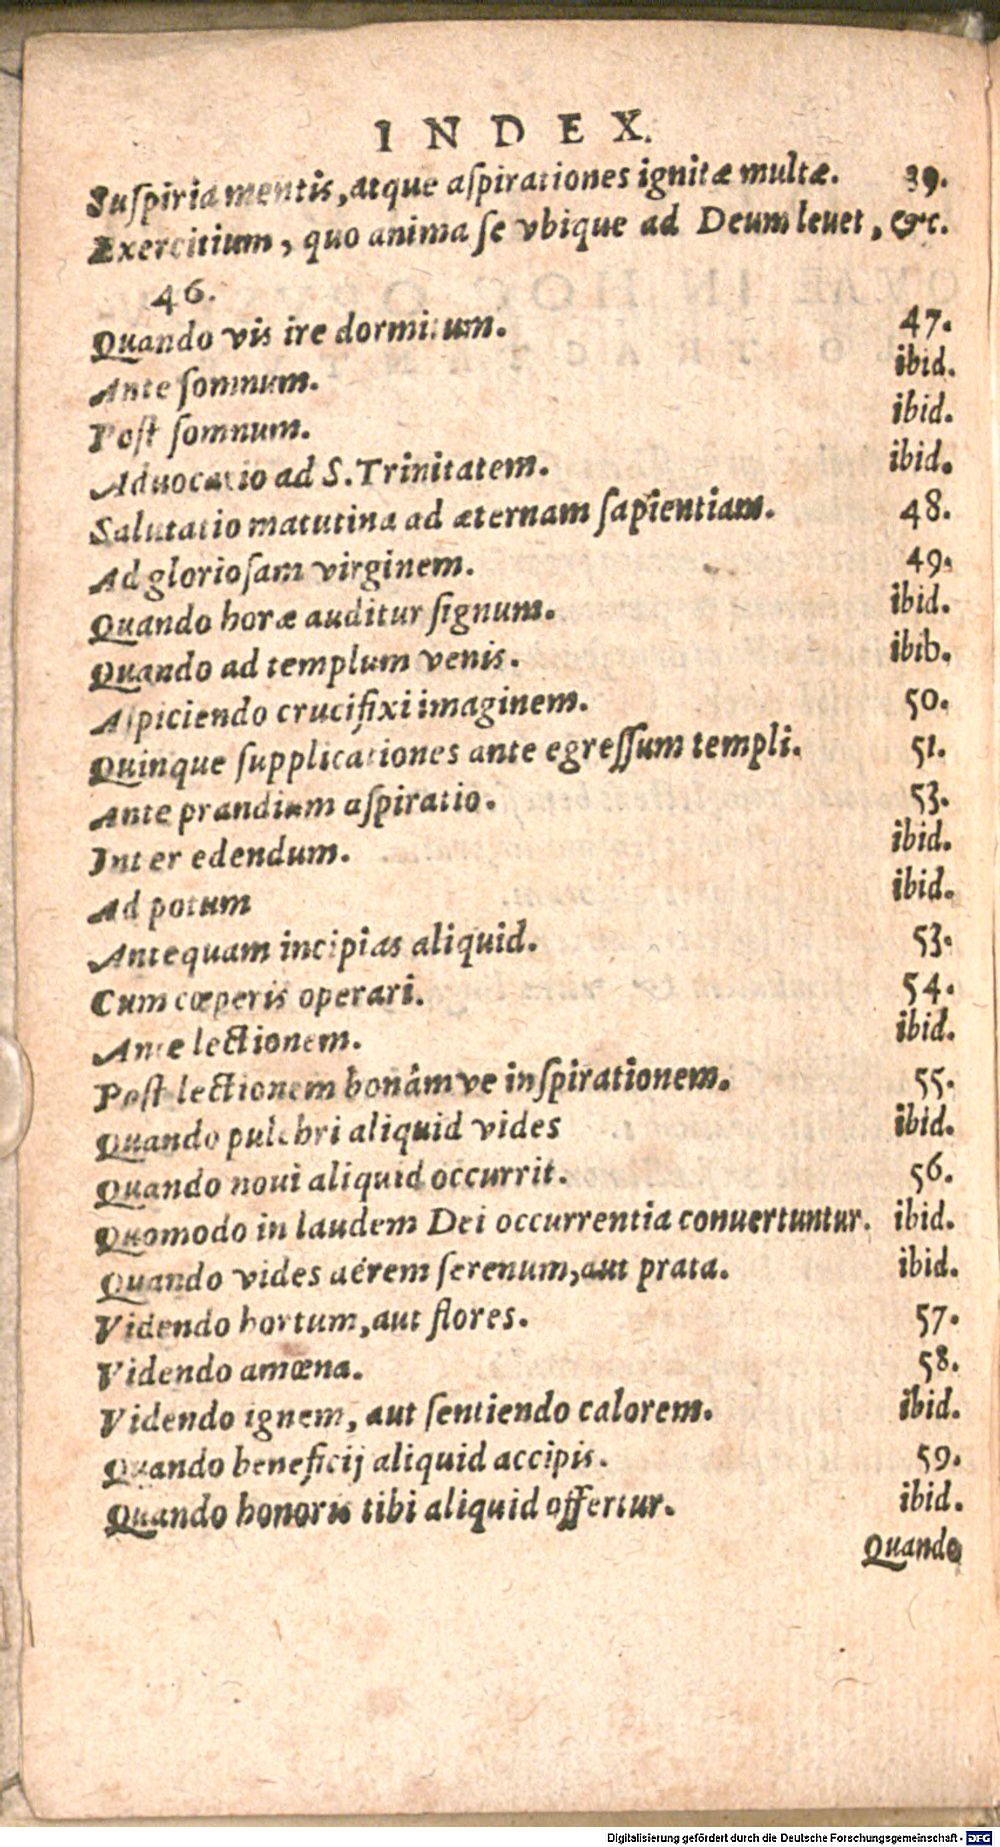 INDEX.
Suſpiria mentis, atque aſpirationes ignitæ multæ. 39.
Exercitium, quo anima ſe vbique ad Deum leuet, &c.
46.
Quando vis ire dormitum. 47.
Ante ſomnum. ibid.
Poſt ſomnum. ibid.
Aduocatio ad S. Trinitatem. ibid.
Salutatio matutina ad æternam ſapientiam. 48.
Ad glorioſam virginem. 49.
Quando horæ auditur ſignum. ibid.
Quando ad templum venis. ibib.
Aſpiciendo crucifixi imaginem. 50.
Quinque ſupplicationes ante egreſſum templi. 51.
Ante prandium aſpiratio. 53.
Inter edendum. ibid.
Ad potum ibid.
Antequam incipias aliquid. 53.
Cum cœperis operari. 54.
Ante lectionem. ibid.
Poſt lectionem bonámve inſpirationem. 55.
Quando pulchri aliquid vides ibid.
Quando noui aliquid occurrit. 56.
Quomodo in laudem Dei occurrentia conuertuntur. ibid.
Quando vides aërem ſerenum, aut prata. ibid.
Videndo hortum, aut flores. 57.
Videndo amœna. 58.
Videndo ignem, aut ſentiendo calorem. ibid.
Quando beneficij aliquid accipis. 59.
Quando honoris tibi aliquid offertur. ibid.
Quando
Digitalisierung gefördert durch die Deutsche Forschungsgemeinschaft - DFG